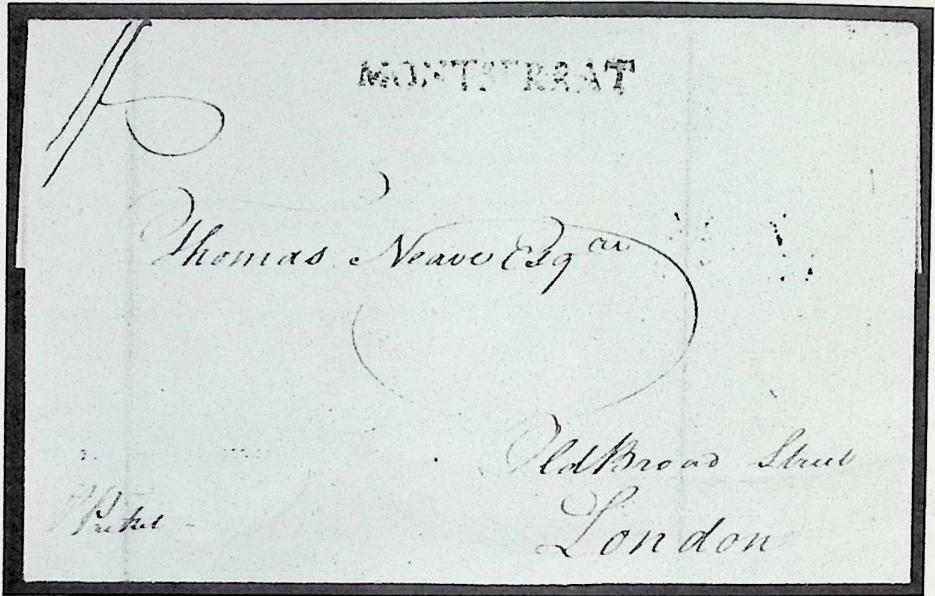 MONTSERRAT
Thomas Neave Esq
Old Broad Street
London